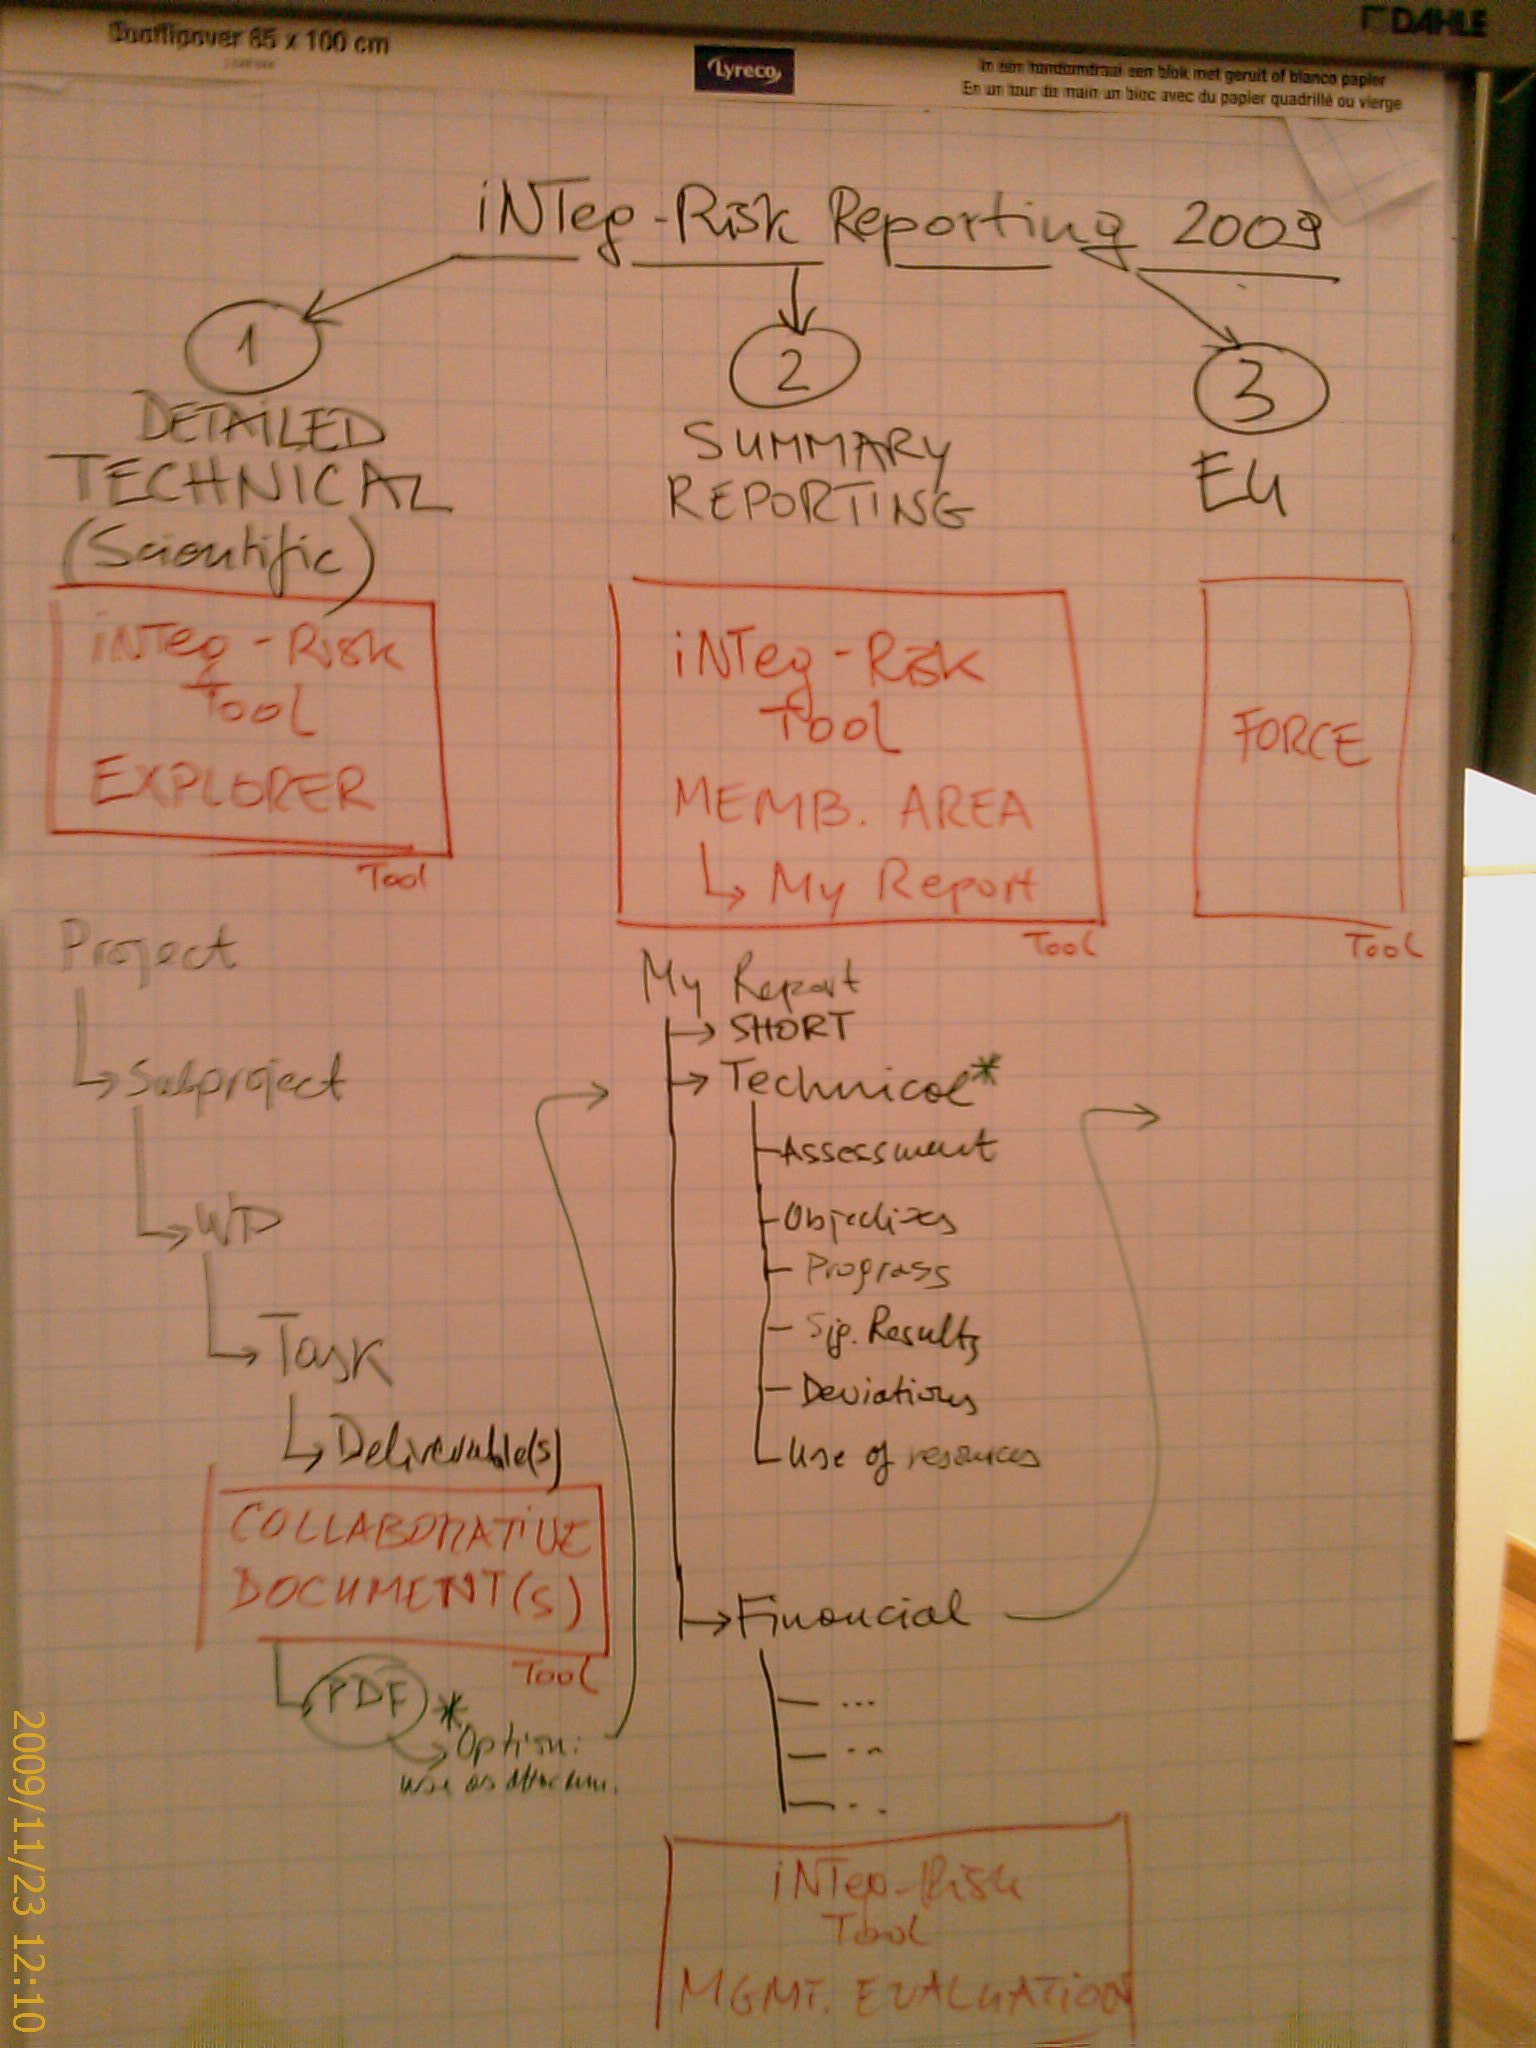 DAHLE
85 x 100 cm
Lyreco
In een handomdraai een blok met geruit of blanco papier
En un tour de main un bloc avec du papier quadrillé ou vierge
iNTeg-Risk Reporting 2009
1
DETAILED
TECHNICAL
(Scientific)
iNTeg-Risk
Tool
EXPLORER
Tool
Project
Subproject
WP
Task
Deliverable(s)
COLLABORATIVE
DOCUMENT(S)
Tool
PDF *
Option:
use as
2
SUMMARY
REPORTING
iNTeg-Risk
Tool
MEMB. AREA
My Report
Tool
My Report
SHORT
Technical*
Assessment
Objectives
Progress
Sig. Results
Deviations
Use of resources
Financial
...
...
...
iNTeg-Risk
Tool
MGMT. EVALUATION
3
EU
FORCE
Tool
2009/11/23 12:10